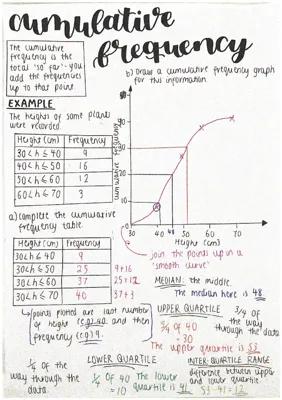 cumulative
frequency
The cumulative
frequency is the
total 'so far' - you
add the frequencies
up to that point.
b) Draw a cumulative frequency graph
for this information.
EXAMPLE
The heights of some plants
were recorded.
Height (cm) Frequency
30<h≤40 9
40<h≤50 16
50<h≤60 12
60<h≤70 3
a) Complete the cumulative
frequency table.
Height (cm) Frequency
30<h≤40 9
30<h≤50 25 9+16
30<h≤60 37 25+12
30<h≤70 40 37+3
cumulative frequency
40
30
20
10
30 40 48 50 60 70
Height (cm)
join the points up in a
'smooth curve'
MEDIAN: the middle.
The median here is 48
points plotted are last number
of height (e.g) 40 and then
frequency (e.g) 9.
UPPER QUARTILE 3/4 of
the way
through the data
3/4 of 40
= 30
The upper quartile is 53
1/4 of the
way through
the data.
LOWER QUARTILE
1/4 of 40 The lower
= 10 quartile is 41
INTER-QUARTILE RANGE
difference between upper
and lower quartile.
53-41=12